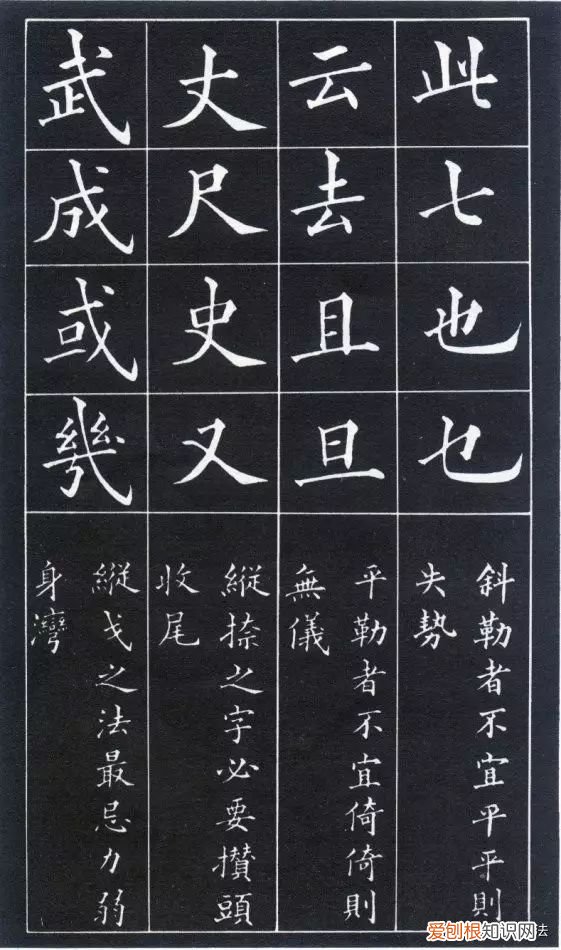 此七也乜
斜勒者不宜平平則
失勢
云去且旦
平勒者不宜倚倚則
無儀
丈尺史又
縱捺之字必要攢頭
收尾
武成或幾
縱戈之法最忌力弱
身灣
爱刨根知识网法